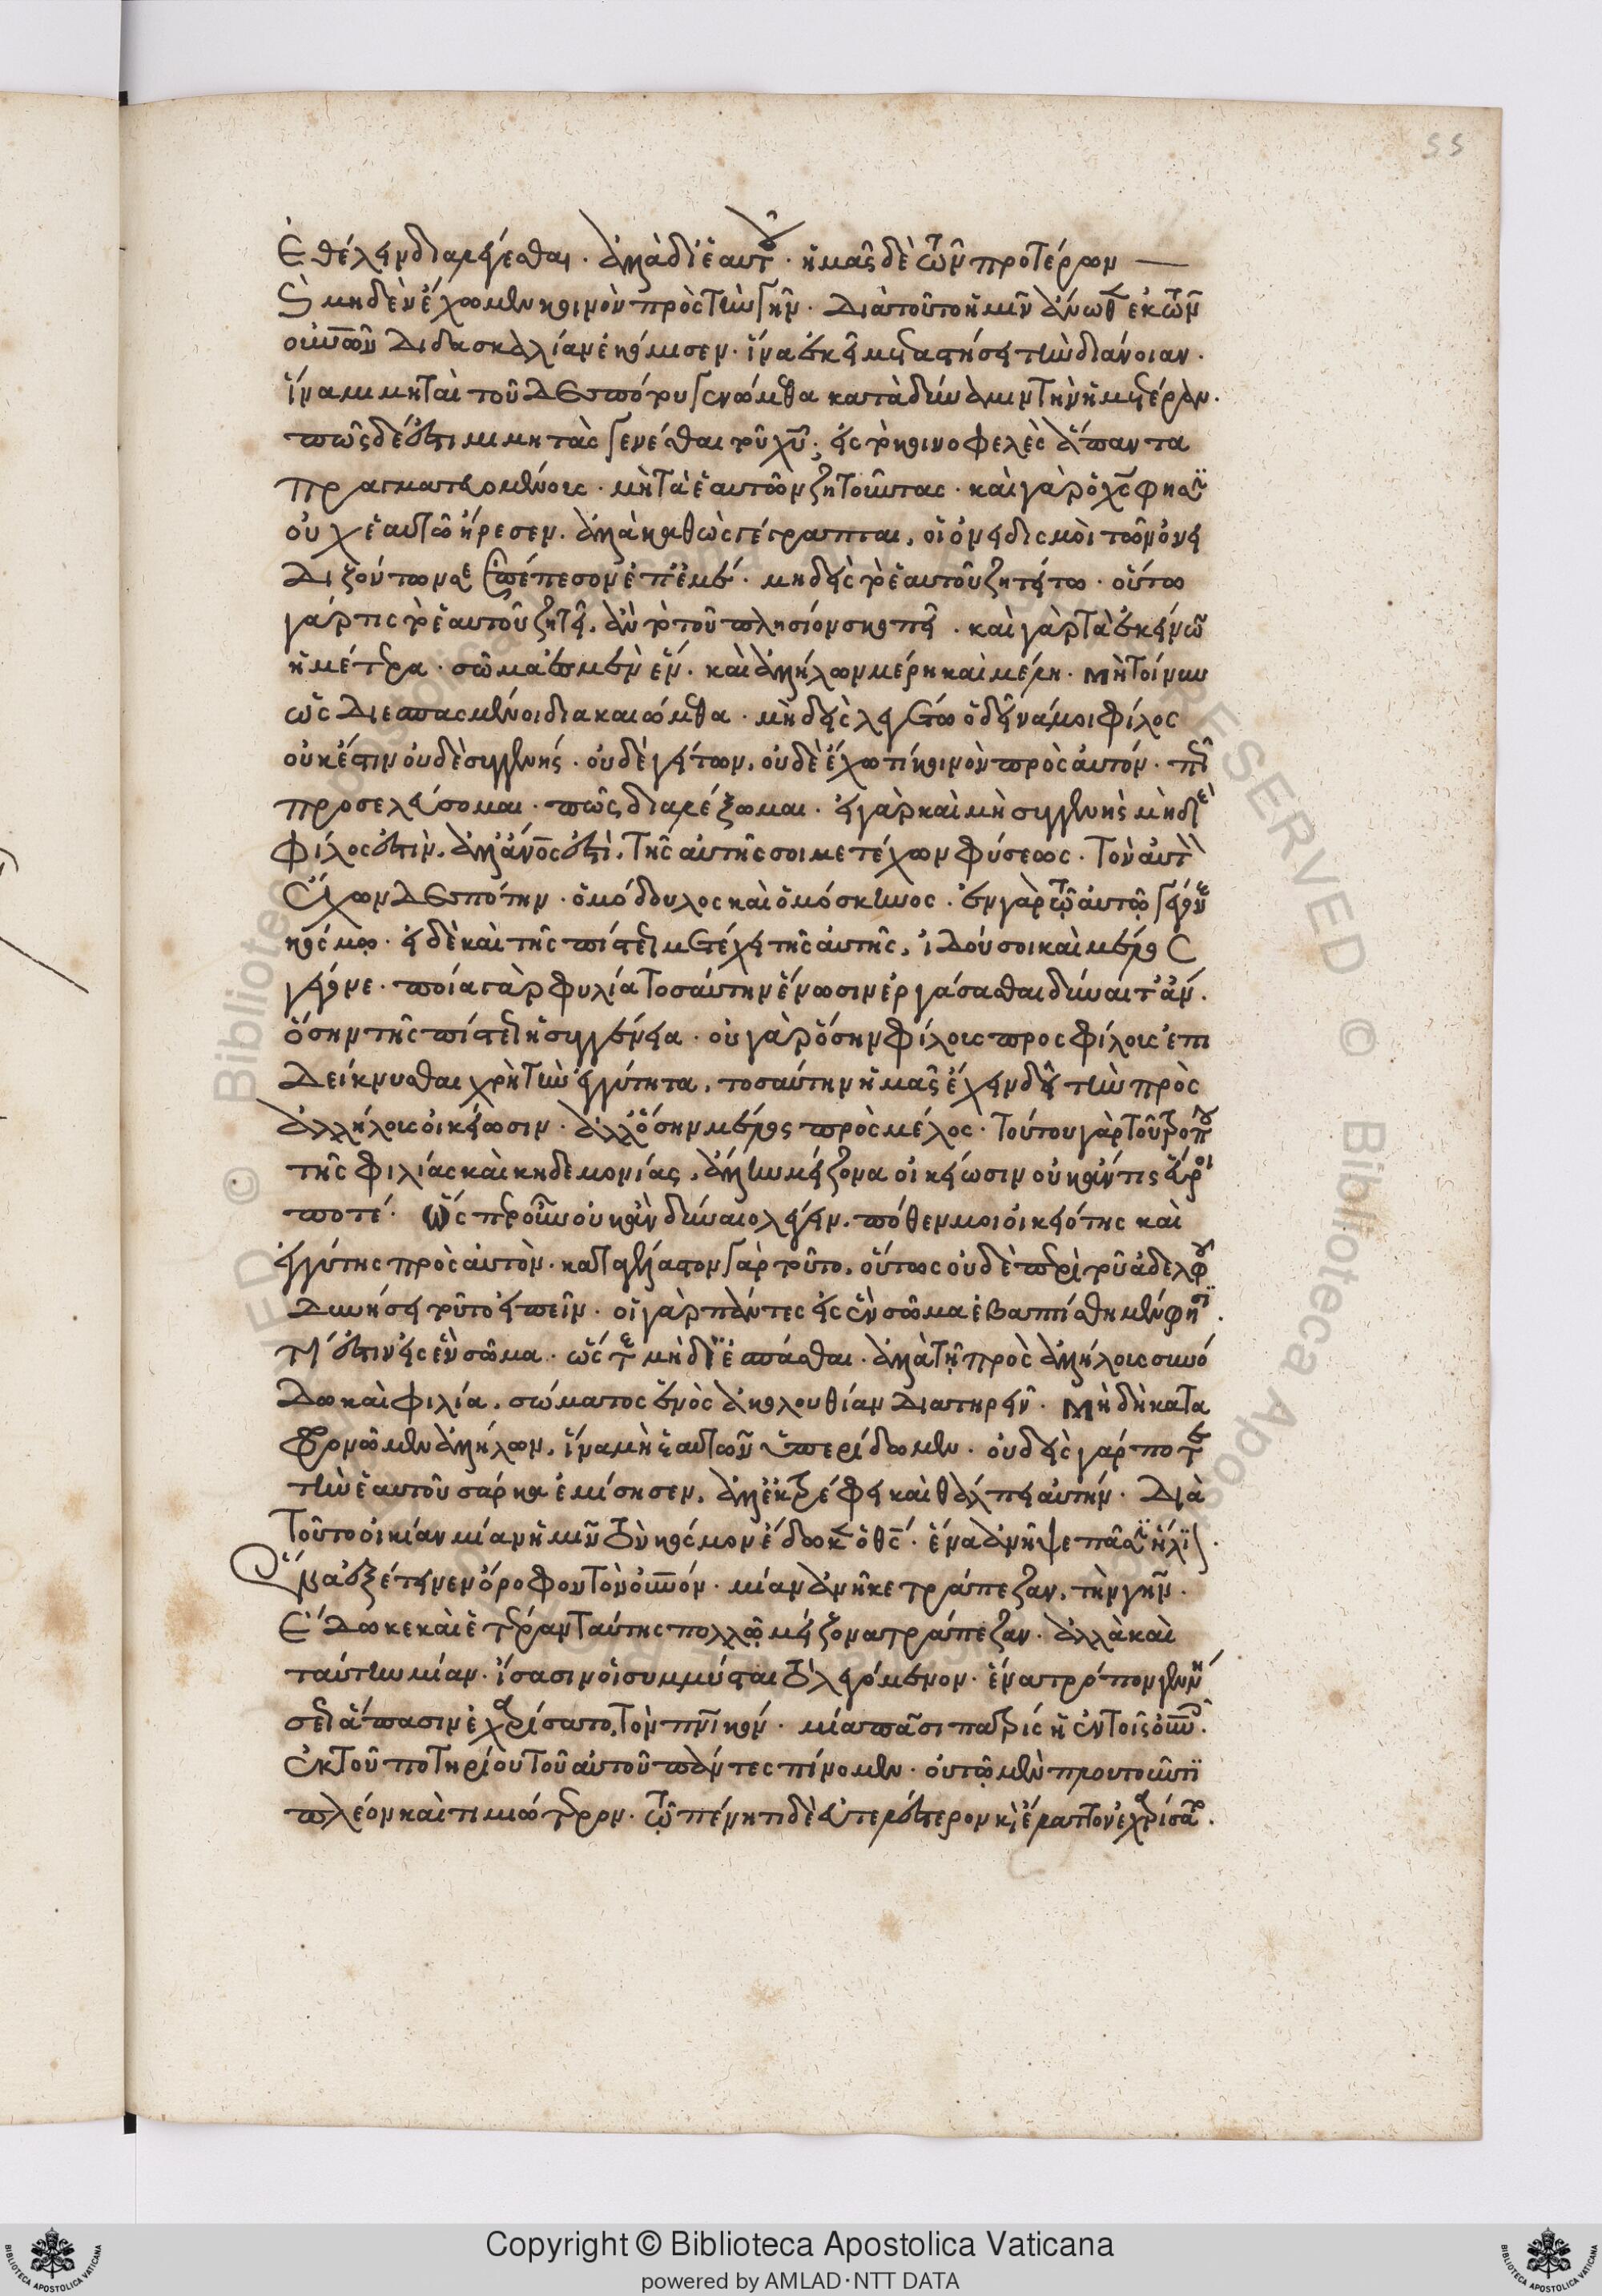 Ἐθέλειν διαλέγεσθαι. ἀλλὰ δι' ἑαυτοῦ. ἡμᾶς δὲ τῶν προτέρων
μηδὲν ἔχωμεν κοινὸν πρὸς τὴν γῆν. διὰ τοῦτο ἡμῖν ἄνωθεν ἐκ τῶν
οὐνῶν διδασκαλίαν ἐκόμισεν. ἵνα ἐκεῖ μεταστήσῃ τὴν διάνοιαν.
ἵνα μιμηταὶ τοῦ Δεσπότου γενώμεθα κατὰ δύναμιν τὴν ἡμετέραν.
πῶς δέ ἐστι μιμητὰς γενέσθαι τοῦ χυ; εἰς τὸ κοινοφελὲς ἅπαντα
πραγματευομένους. μὴ τὰ ἑαυτῶν ζητοῦντας. καὶ γὰρ ὁ χς φησιν
οὐχ ἑαυτῶ ἤρεσεν. ἀλλὰ καθὼς γέγραπται, οἱ ὀνειδισμοὶ τῶν ὀνει
διζόντων σε ἐπέπεσον ἐπ' ἐμέ. μηδεὶς τὸ ἑαυτοῦ ζητείτω. οὕτω
γάρ τις τὸ ἑαυτοῦ ζητεῖ, ἂν τὸ τοῦ πλησίον σκοπῇ. καὶ γὰρ τὰ ἐκείνων
ἡμέτερα. σῶμα ἐσμὲν ἕν. καὶ ἀλλήλων μέρη καὶ μέλη. Μὴ τοίνυν
ὡς διεσπασμένοι διακαιώμεθα. μηδεὶς λεγέτω ὁ δεῖνά μοι φίλος
οὐκ ἔστιν οὐδὲ συγγενής. οὐδὲ γείτων, οὐδὲ ἔχω τι κοινὸν πρὸς αὐτόν. πῶς
προσελεύσομαι. πῶς διαλέξωμαι. εἰ γὰρ καὶ μὴ συγγενὴς μηδὲ
φίλος ἐστίν, ἀλλ' ἄνος ἐστὶ, τῆς αὐτῆς σοι μετέχων φύσεως. τὸν αὐτὸν
ἔχων Δεσπότην. ὁμόδουλος καὶ ὁμόσκηνος. ἐν γὰρ τῷ αὐτῷ γέγονεν
κόσμῳ. εἰ δὲ καὶ τῆς πίστεως μετέχει τῆς αὐτῆς, ἰδού σοι καὶ μέλος
γέγονε. ποία γὰρ φυλία τοσαύτην ἕνωσιν ἐργάσασθαι δύναιτ' ἄν.
ὅσην τῆς πίστεως ἡ συγγένεια. οὐ γὰρ ὅσην φίλους προς φίλους ἐπι
δείκνυσθαι χρὴ τὴν ἐγγύτητα, τοσαύτην ἡμᾶς ἔχειν δεῖ τὴν πρὸς
ἀλλήλους οἰκείωσιν. ἀλλ' ὅσην μέλος πρὸς μέλος. τούτου γὰρ τοῦ τρόπου
τῆς φιλίας καὶ κηδεμονίας, ἄλλην μείζονα οἰκείωσιν οὐκ ἄν τις εὕροι
ποτέ. Ὥσπερ οὖν οὐκ ἂν δύναιο λέγειν. πόθεν μοι οἰκειότης καὶ
ἐγγύτης πρὸς αὐτὸν. καταγέλαστον γὰρ τοῦτο, οὕτως οὐδὲ περὶ τοῦ ἀδελφοῦ
δυνήσῃ τοῦτο εἰπεῖν. οἱ γὰρ πάντες εἰς ἓν σῶμα ἐβαπτίσθημεν φησί.
τί ἐστιν εἰς ἓν σῶμα. ὥστε μὴ διεσπάσθαι. ἀλλὰ τῇ πρὸς ἀλλήλους συνό
δω καὶ φιλία, σώματος ἑνὸς ἀκολουθίαν διατηρεῖν. Μὴ δὴ κατα
φρονῶμεν ἀλλήλων, ἵνα μὴ ἑαυτῶν ὑπερίδωμεν. οὐδεὶς γάρ ποτε
τὴν ἑαυτοῦ σάρκα ἐμίσησεν, ἀλλ' ἐκτρέφει καὶ θάλπει αὐτήν. Διὰ
τοῦτο οἰκίαν μίαν ἡμῖν τὸν κόσμον ἔδωκεν ὁ θς. ἕνα ἀνῆψε πᾶσιν ἥλιον.
ἕνα ἐξέτεινεν ὄροφον τὸν οὐνόν. μίαν ἀνῆκε τράπεζαν, τὴν γῆν.
Ἔδωκε καὶ ἑτέραν ταύτης πολλῷ μείζονα τράπεζαν. ἀλλὰ καὶ
ταύτην μίαν. ἴσασιν οἱ συμμύσται τὸ λεγόμενον. ἕνα τρόπον γεννή
σεως ἅπασιν ἐχαρίσατο, τὸν πνικόν. μία πᾶσι πατρίς ἡ ἐν τοῖς οὐνοῖς.
ἐκ τοῦ ποτηρίου τοῦ αὐτοῦ πάντες πίνομεν. οὐ τῷ μὲν πλουτοῦντι
πλέον καὶ τιμιώτερον. τῷ πένητι δὲ εὐτελέστερον κὶ ἔλαττον ἐχαρίσατο.